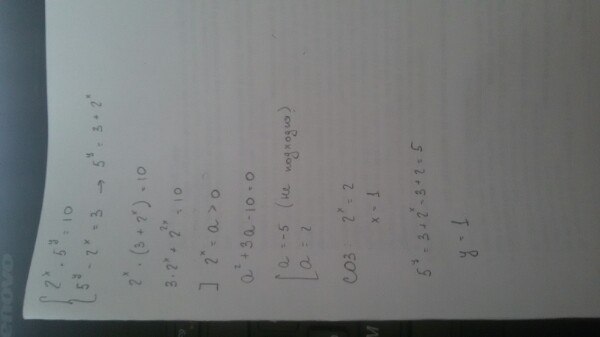 { 2^x · 5^y = 10
5^y - 2^x = 3 → 5^y = 3 + 2^x
2^x · (3 + 2^x) = 10
3 · 2^x + 2^{2x} = 10
] 2^x = a > 0
a^2 + 3a - 10 = 0
[ a = -5 (не подходит)
a = 2
СОЗ: 2^x = 2
x = 1
5^y = 3 + 2^x = 3 + 2 = 5
y = 1